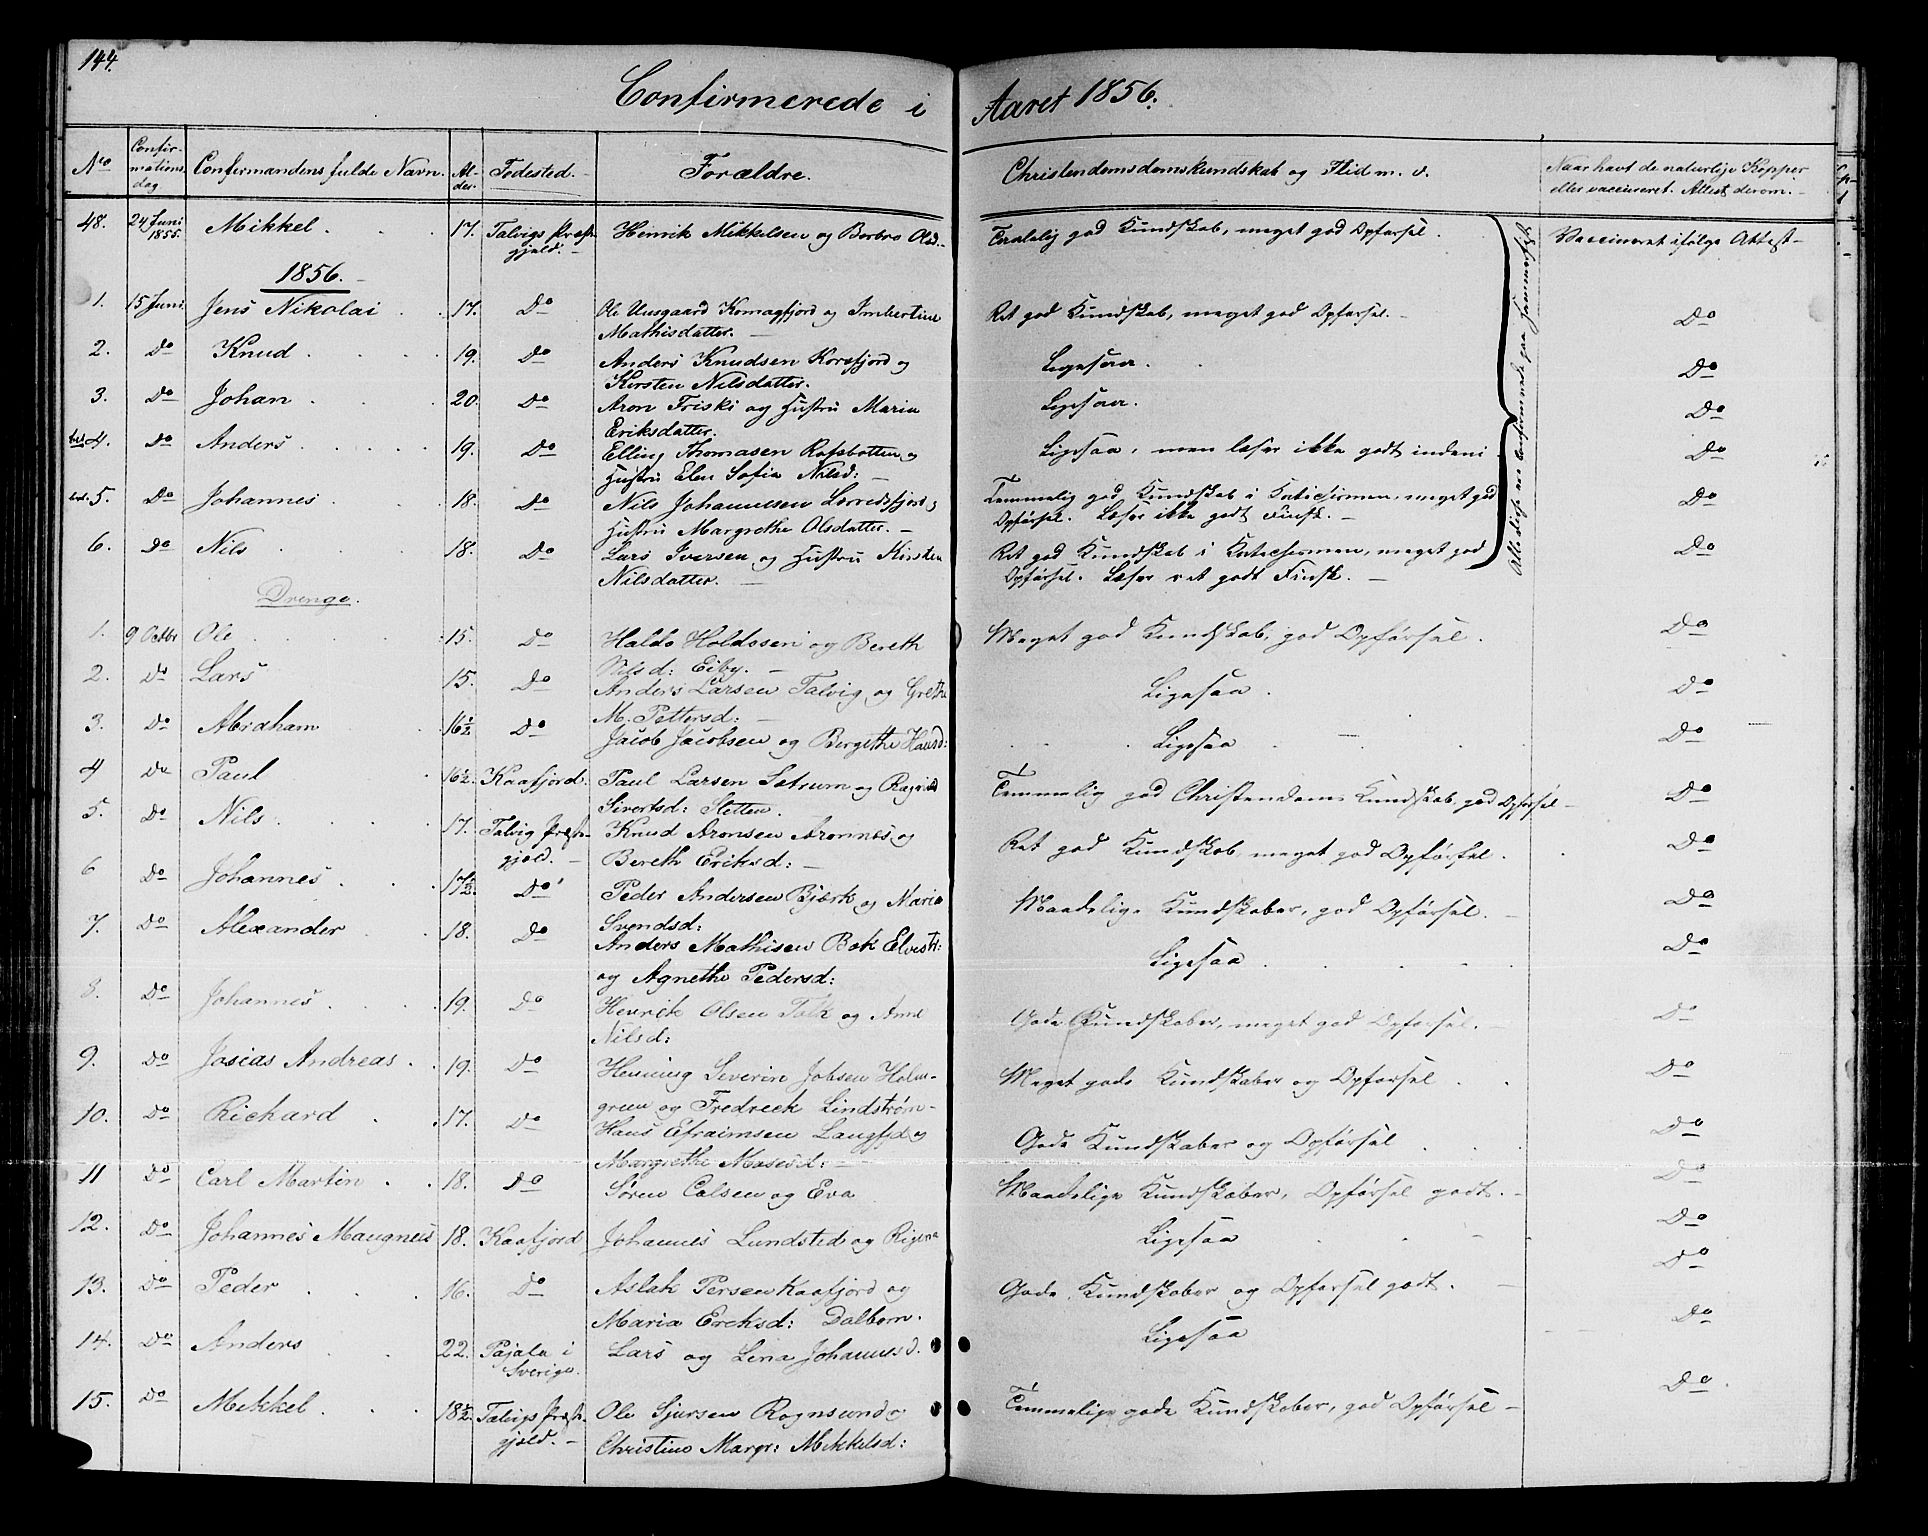 144.
Confirmerede i Aaret 1856.
No Confirmations dag Confirmandens fulde Navn. Alder. Fødested. Forældre. Christendomsdomskundskab og Flid m. v. Naar havt de naturlige Kopper eller vaccineret. Attest derom.
48. 24 Juni 1855. Mikkel. 17. Talvigs Præstegjeld. Henrik Mikkelsen og Berbro Olsd. Temmelig god Kundskab, meget god Opførsel. Vaccineret ifølge Attest
1856.
1. 15 Juni Jens Nikolai 17. Do Ole Uusgaard Komagfjord og Imbertine Mathisdatter. Ret god Kundskab, meget god Opførsel. Do
2. Do Knud 19. Do Anders Knudsen Korsfjord og Kirsten Nilsdatter. Ligesaa. Do
3. Do Johan 20. Do Aron Friski og Hustru Maria Eriksdatter. Ligesaa. Do
4. Do Anders 19. Do Elling Thomasen Rafsbotten og Hustru Elen Sofia Nilsd: Ligesaa, men læser ikke godt indeni Do
5. Do Johannes 18. Do Nils Johannesen Lerredsfjord, Hustru Margrethe Olsdatter. Temmelig god Kundskab i Katechismen, meget god Opførsel. Læser ikke godt Finsk. Do
6. Do Nils 18. Do Lars Iversen og Hustru Kirsten Nilsdatter. Ret god Kundskab i Katechismen, meget god Opførsel. Læser ret godt Finsk. Do
Alle disse ere confirmerede paa
Drenge.
1. 9 Octbr Ole 15. Do Haldo Holdssen og Bereth Nilsd: Eiby. Meget god Kundskab, god Opførsel. Do
2. Do Lars 15. Do Anders Larsen Talvig og Grethe M. Pettersd: Ligesaa. Do
3. Do Abraham 16½ Do Jacob Jacobsen og Bergethe Hansd: Ligesaa Do
4 Do Paul 16½ Kaafjord. Paul Larsen Sætrum og Ragnild Sivertsd: Sletten. Temmelig god Christendoms Kundskab, god Opførsel Do
5. Do Nils 17. Talvig Præstegjeld. Knud Aronsen Aronnes og Bereth Eriksd: Ret god Kundskab, meget god Opførsel. Do
6 Do Johannes 17½ Do Peder Andersen Bjørk og Maria Svendsd: Maadelige Kundskaber, god Opførsel. Do
7. Do Alexander 18. Do Anders Mathisen Bok Elvestr: og Agnethe Pedersd: Ligesaa Do
8. Do Johannes 19. Do Henrik Olsen Talk og Anne Nilsd: Gode Kundskaber, meget god Opførsel. Do
9. Do Josias Andreas 19. Do Henning Severin Jobsen Holmgreen og Fredreck Lindstrøm Meget gode Kundskaber og Opførsel Do
10. Do Richard 17. Do Hans Efraimsen Langfjd og Margrethe Mosesd: Gode Kundskaber og Opførsel Do
11 Do Carl Martin 18. Do Søren Colsen og Eva Maadelige Kundskaber, Opførsel godt. Do
12. Do Johannes Maugneus 18. Kaafjord Johannes Lundsted og Rigena Ligesaa Do
13. Do Peder 16. Do Aslak Persen Kaafjord og Maria Ereksd: Dalbom. Gode Kundskaber og Opførsel godt. Do
14. Do Anders 22. Pajala i Sverige. Lars og Lena Johannesd. Ligesaa Do
15. Do Mikkel 18½ Talvigs Præstegjeld. Ole Sjursen Rognsund og Christine Margr: Mikkelsd: Temmelige gode Kundskaber, god Opførsel Do